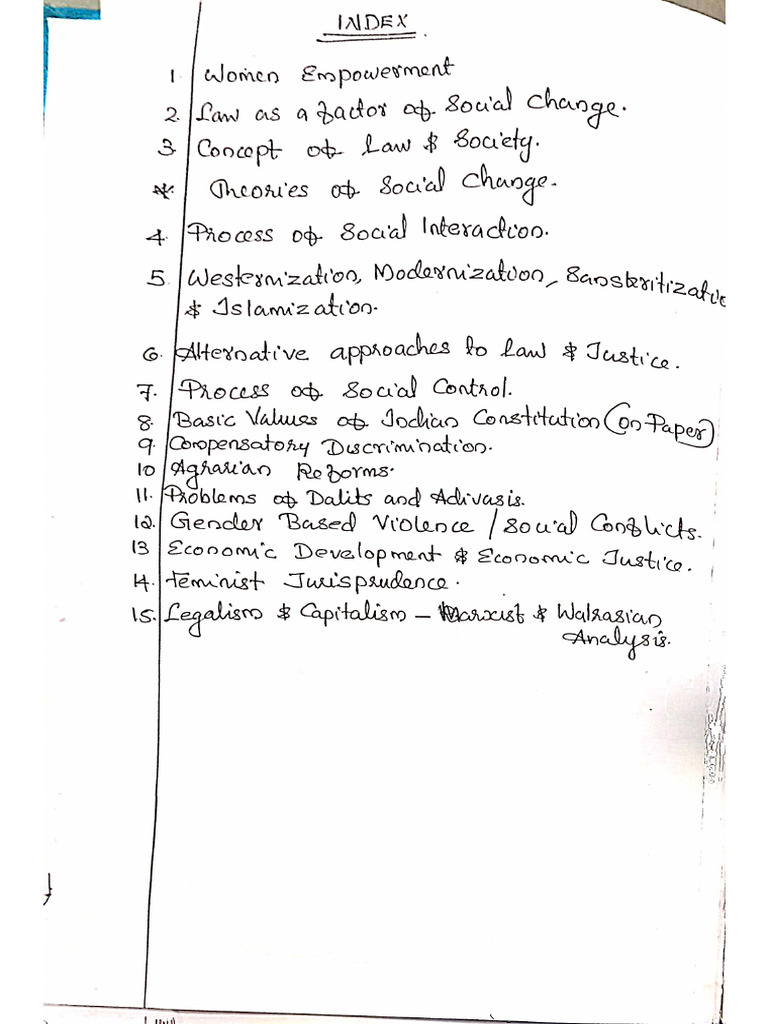 INDEX
1. Women Empowerment
2. Law as a factor of Social Change.
3. Concept of Law & Society.
* Theories of Social Change.
4. Process of Social Interaction.
5. Westernization, Modernization, Sanskritization
& Islamization.
6. Alternative approaches to Law & Justice.
7. Process of Social Control.
8. Basic Values of Indian Constitution (on Paper)
9. Compensatory Discrimination.
10 Agrarian Reforms.
11. Problems of Dalits and Adivasis.
12. Gender Based Violence / Social Conflicts.
13 Economic Development & Economic Justice.
14. Feminist Jurisprudence.
15. Legalism & Capitalism – Marxist & Walrasian
Analysis.